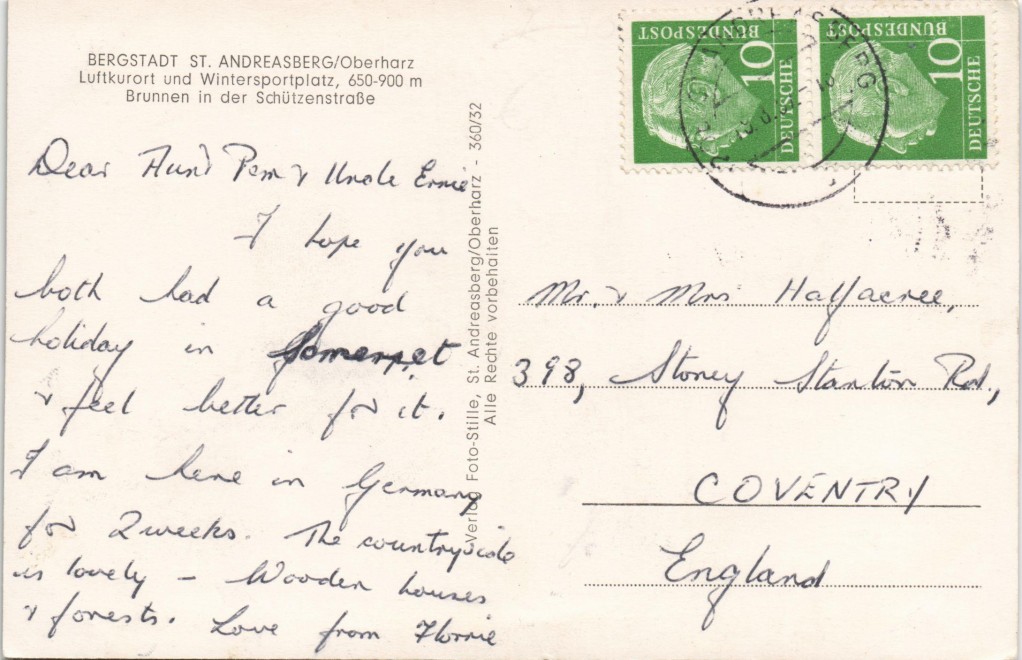 BERGSTADT ST. ANDREASBERG/Oberharz
Luftkurort und Wintersportplatz, 650-900 m
Brunnen in der Schützenstraße
Dear Aunt Pem & Uncle Ernie
I hope you
both had a good
holiday in Somerset
& feel better for it.
I am here in Germany
for 2 weeks. The countryside
is lovely – Wooden houses
& forests. Love from Florrie
Verlag Foto-Stille, St. Andreasberg/Oberharz - 360/32
Alle Rechte vorbehalten
DEUTSCHE
BUNDESPOST
10
DEUTSCHE
BUNDESPOST
10
Mr. & Mrs Halfacree,
398, Stoney Stanton Rd,
COVENTRY
England